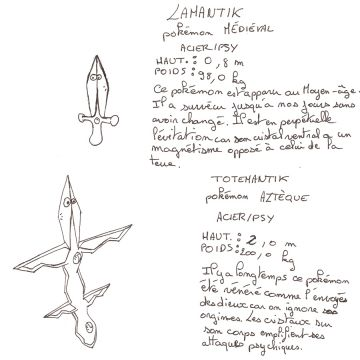 LAMANTIK
pokémon MÉDIÉVAL
ACIER/PSY
HAUT.: 0,8 m
POIDS: 98,0 kg
Ce pokémon est apparu au Moyen-âge.
Il a survécu jusqu'a nos jours sans
avoir changé. Il est en perpétuelle
lévitation car son cristal ventral a un
magnétisme opposé à celui de la
terre.
TOTEMANTIK
pokémon AZTÈQUE
ACIER/PSY
HAUT.: 2,0 m
POIDS: 200,0 kg
Il y a longtemps ce pokémon
été vénéré comme l'envoyés
des dieux car on ignore ses
origines. Les cristaux sur
son corps emplifient ses
attaques psychiques.